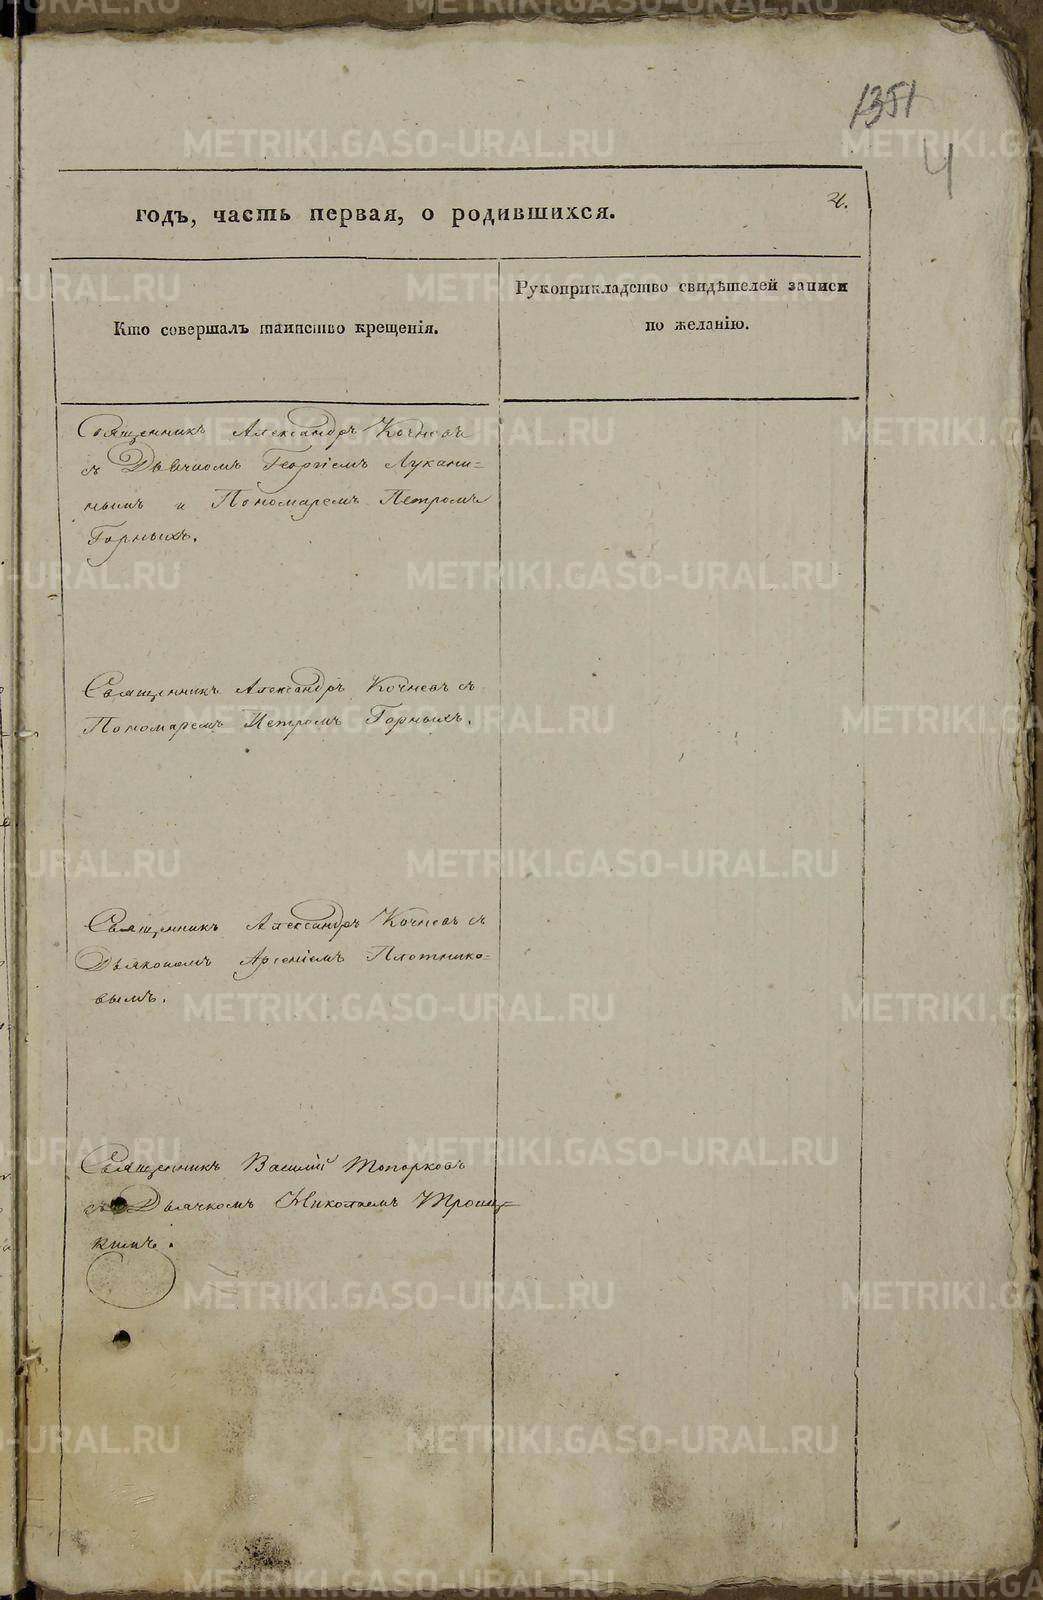 1351
4
годъ, часть первая, о родившихся.
4.
Кто совершалъ таинство крещенія.
Рукоприкладство свидѣтелей записи
по желанію.
Священникъ Александръ Кочневъ
съ Дьячкомъ Георгіемъ Лукани-
нымъ и Пономаремъ Петромъ
Горныхъ.
Священникъ Александръ Кочневъ съ
Пономаремъ Петромъ Горныхъ.
Священникъ Александръ Кочневъ съ
Дьякономъ Арсеніемъ Плотнико-
вымъ.
Священникъ Василій Топорковъ
съ Дьячкомъ Николаемъ
METRIKI.GASO-URAL.RU